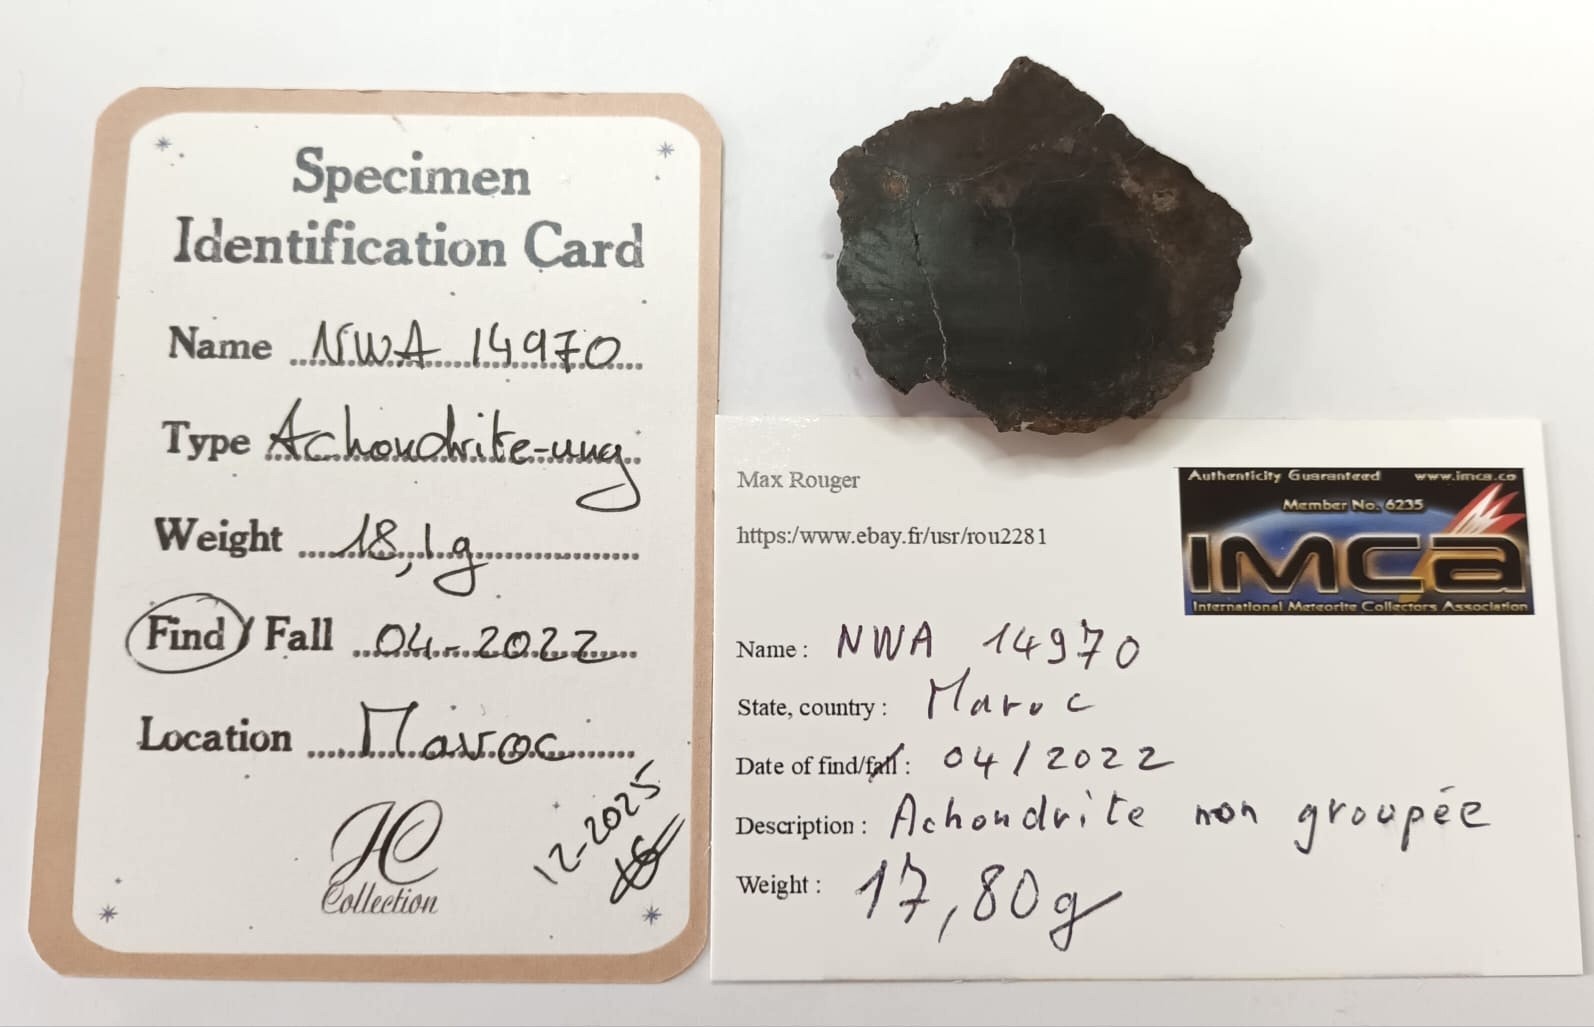 Specimen
Identification Card
Name NWA 14970
Type Achondrite-ung
Weight 18,1g
Find / Fall 04-2022
Location Maroc
JC
Collection
12-2025
Max Rouger
https:/www.ebay.fr/usr/rou2281
Authenticity Guaranteed www.imca.cc
Member No. 6235
IMCA
International Meteorite Collectors Association
Name : NWA 14970
State, country : Maroc
Date of find/fall : 04/2022
Description : Achondrite non groupée
Weight : 17,80g